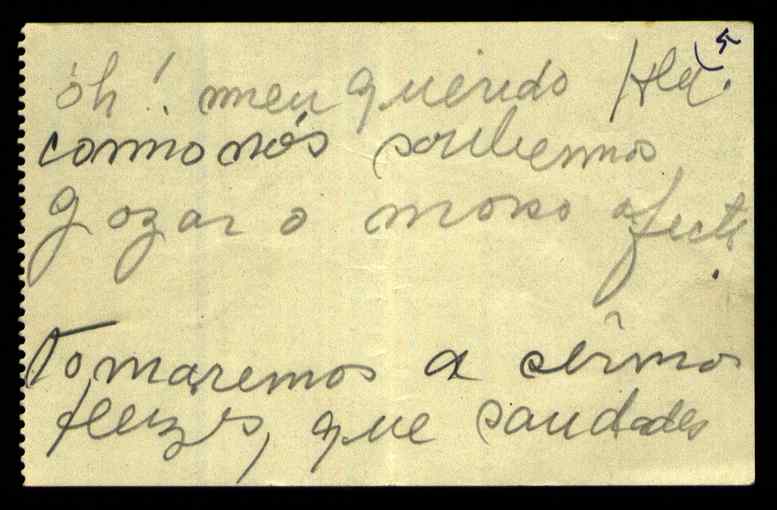 5
óh! meu querido
como nós soubemos
gozar o nosso afecto.
Tomaremos a sêrmos
felizes, que saudades